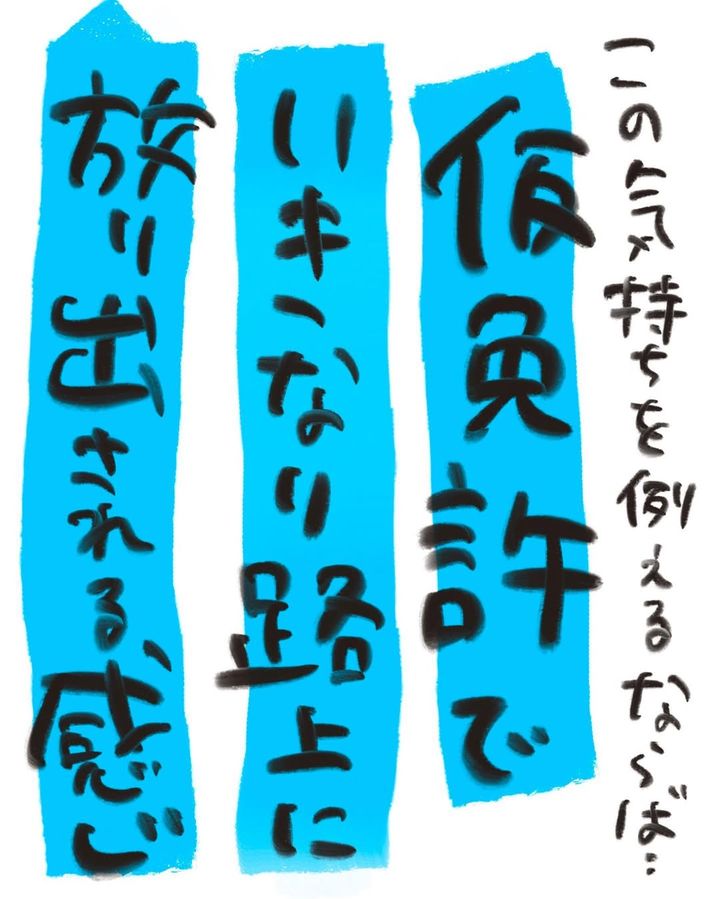 この気持ちを例えるならば…
仮免許で
いきなり路上に
放り出される、感じ